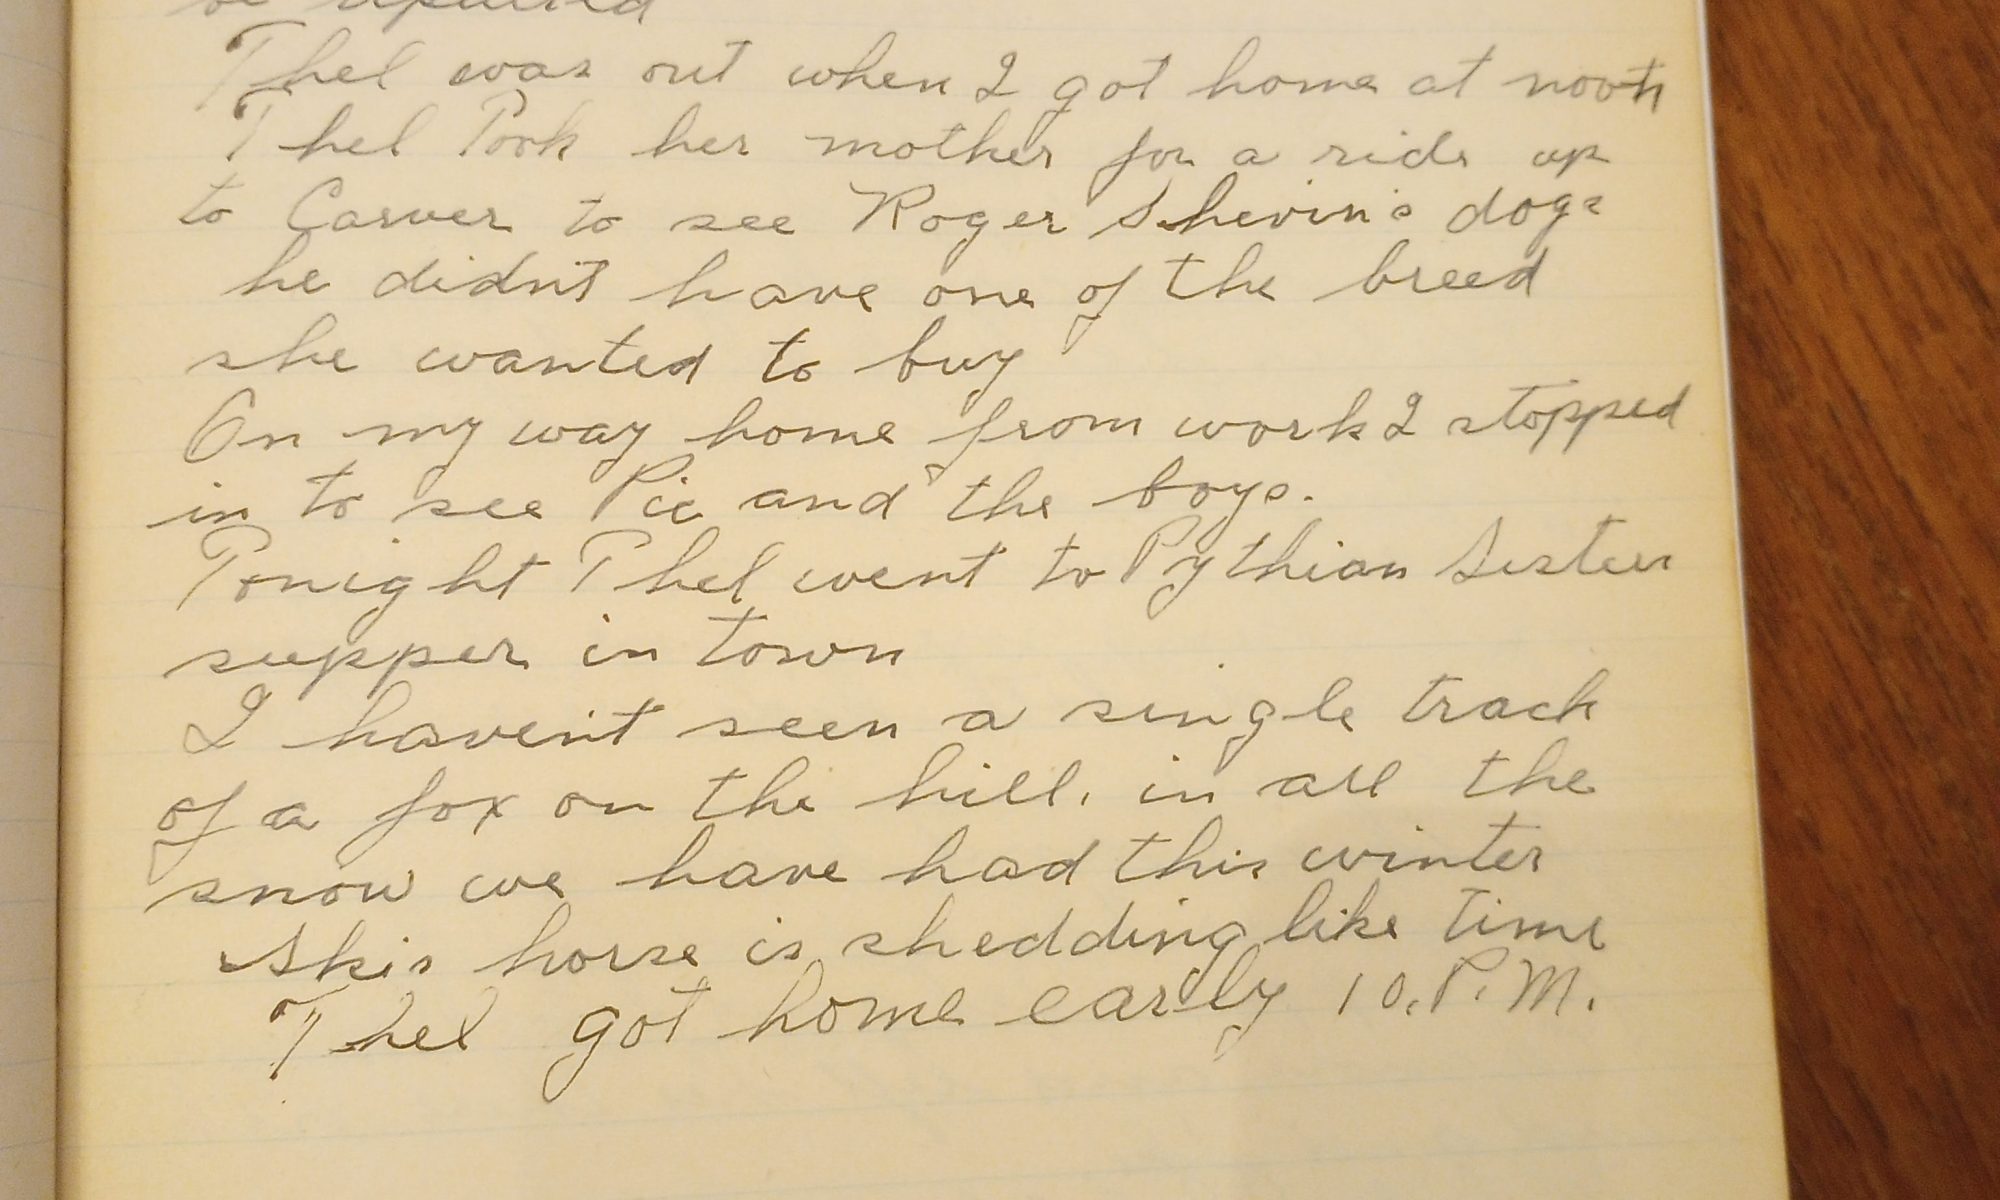 be repaired
Thel was out when I got home at noon
Thel Took her mother for a ride up
to Carver to see Roger Shevin's dogs
he didn't have one of the breed
she wanted to buy
On my way home from work I stopped
in to see Pic and the boys.
Tonight Thel went to Pythian Sister
supper in town
I haven't seen a single track
of a fox on the hill, in all the
snow we have had this winter
Skis horse is shedding like time
Thel got home early 10.P.M.